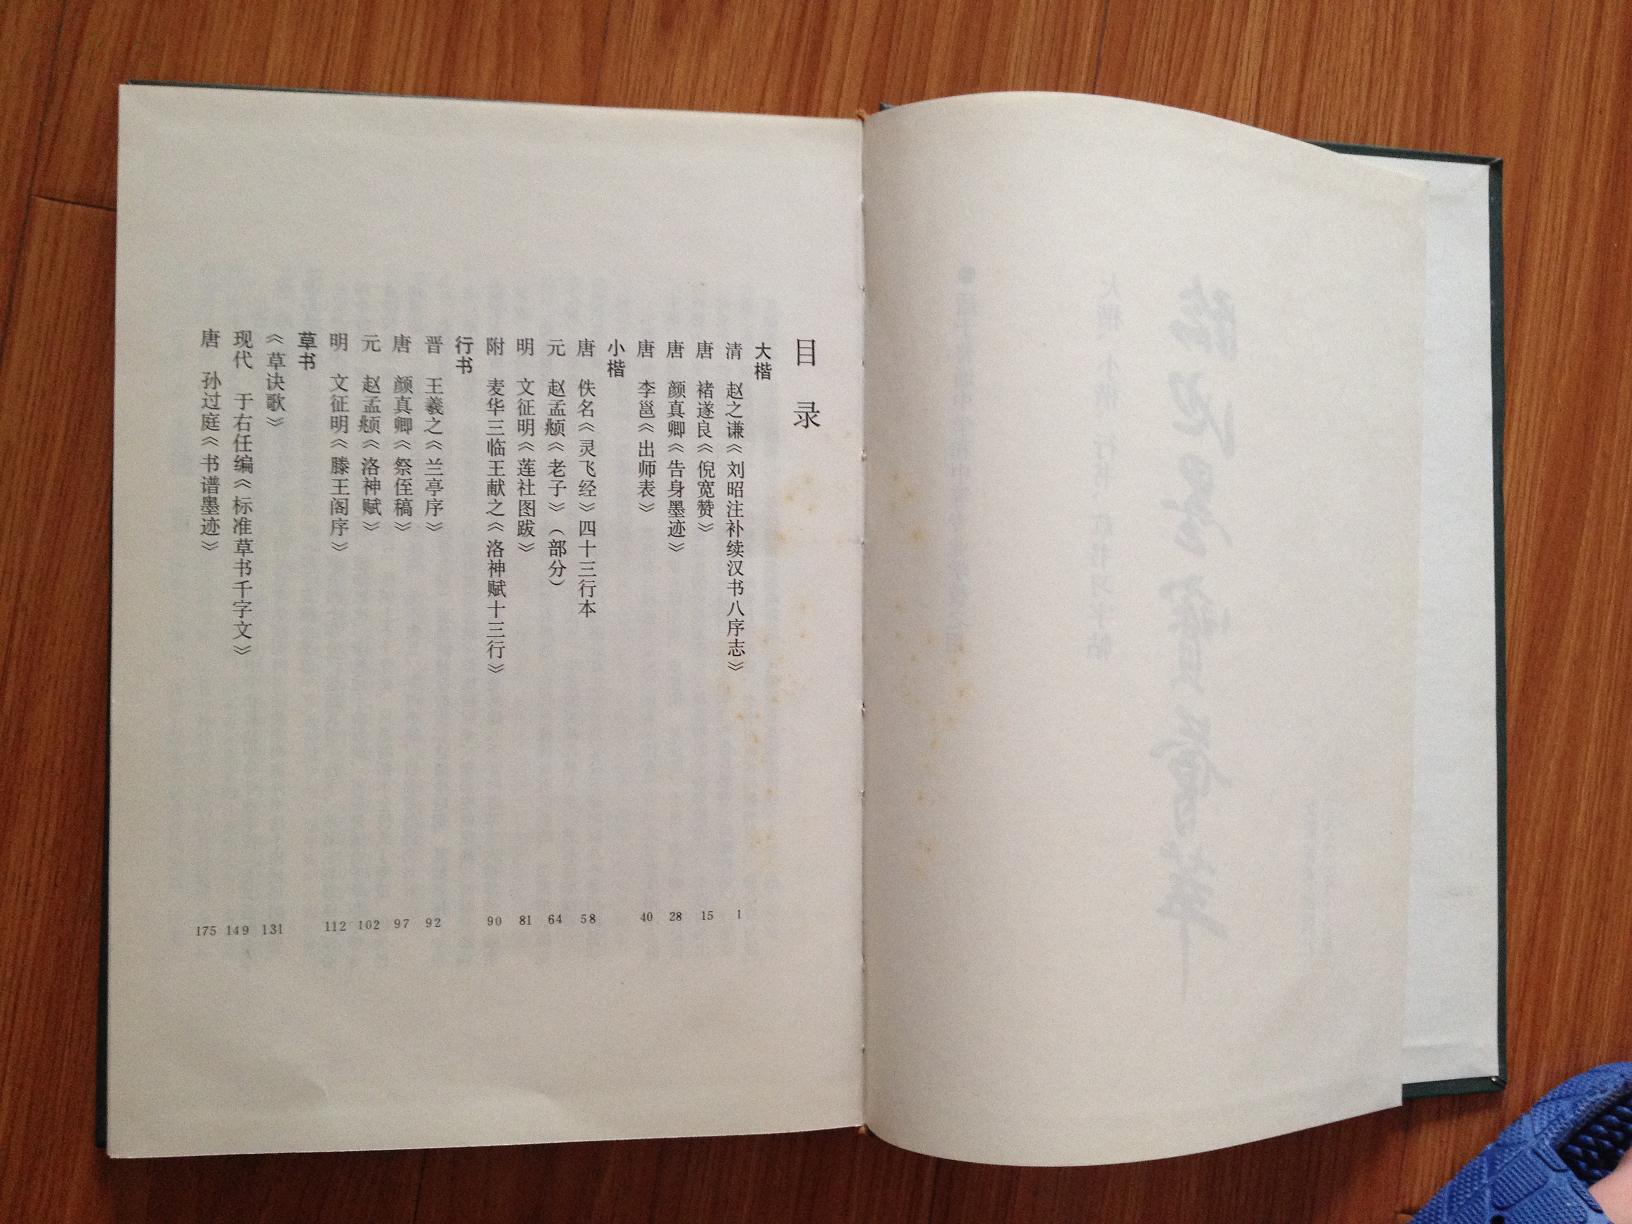 目录
大楷
清 赵之谦《刘昭注补续汉书八序志》 1
唐 褚遂良《倪宽赞》 15
唐 颜真卿《告身墨迹》 28
唐 李邕《出师表》 40
小楷
唐 佚名《灵飞经》四十三行本 58
元 赵孟頫《老子》(部分) 64
明 文征明《莲社图跋》 81
附 麦华三临王献之《洛神赋十三行》 90
行书
晋 王羲之《兰亭序》 92
唐 颜真卿《祭侄稿》 97
元 赵孟頫《洛神赋》 102
明 文征明《滕王阁序》 112
草书
《草诀歌》 131
现代 于右任编《标准草书千字文》 149
唐 孙过庭《书谱墨迹》 175